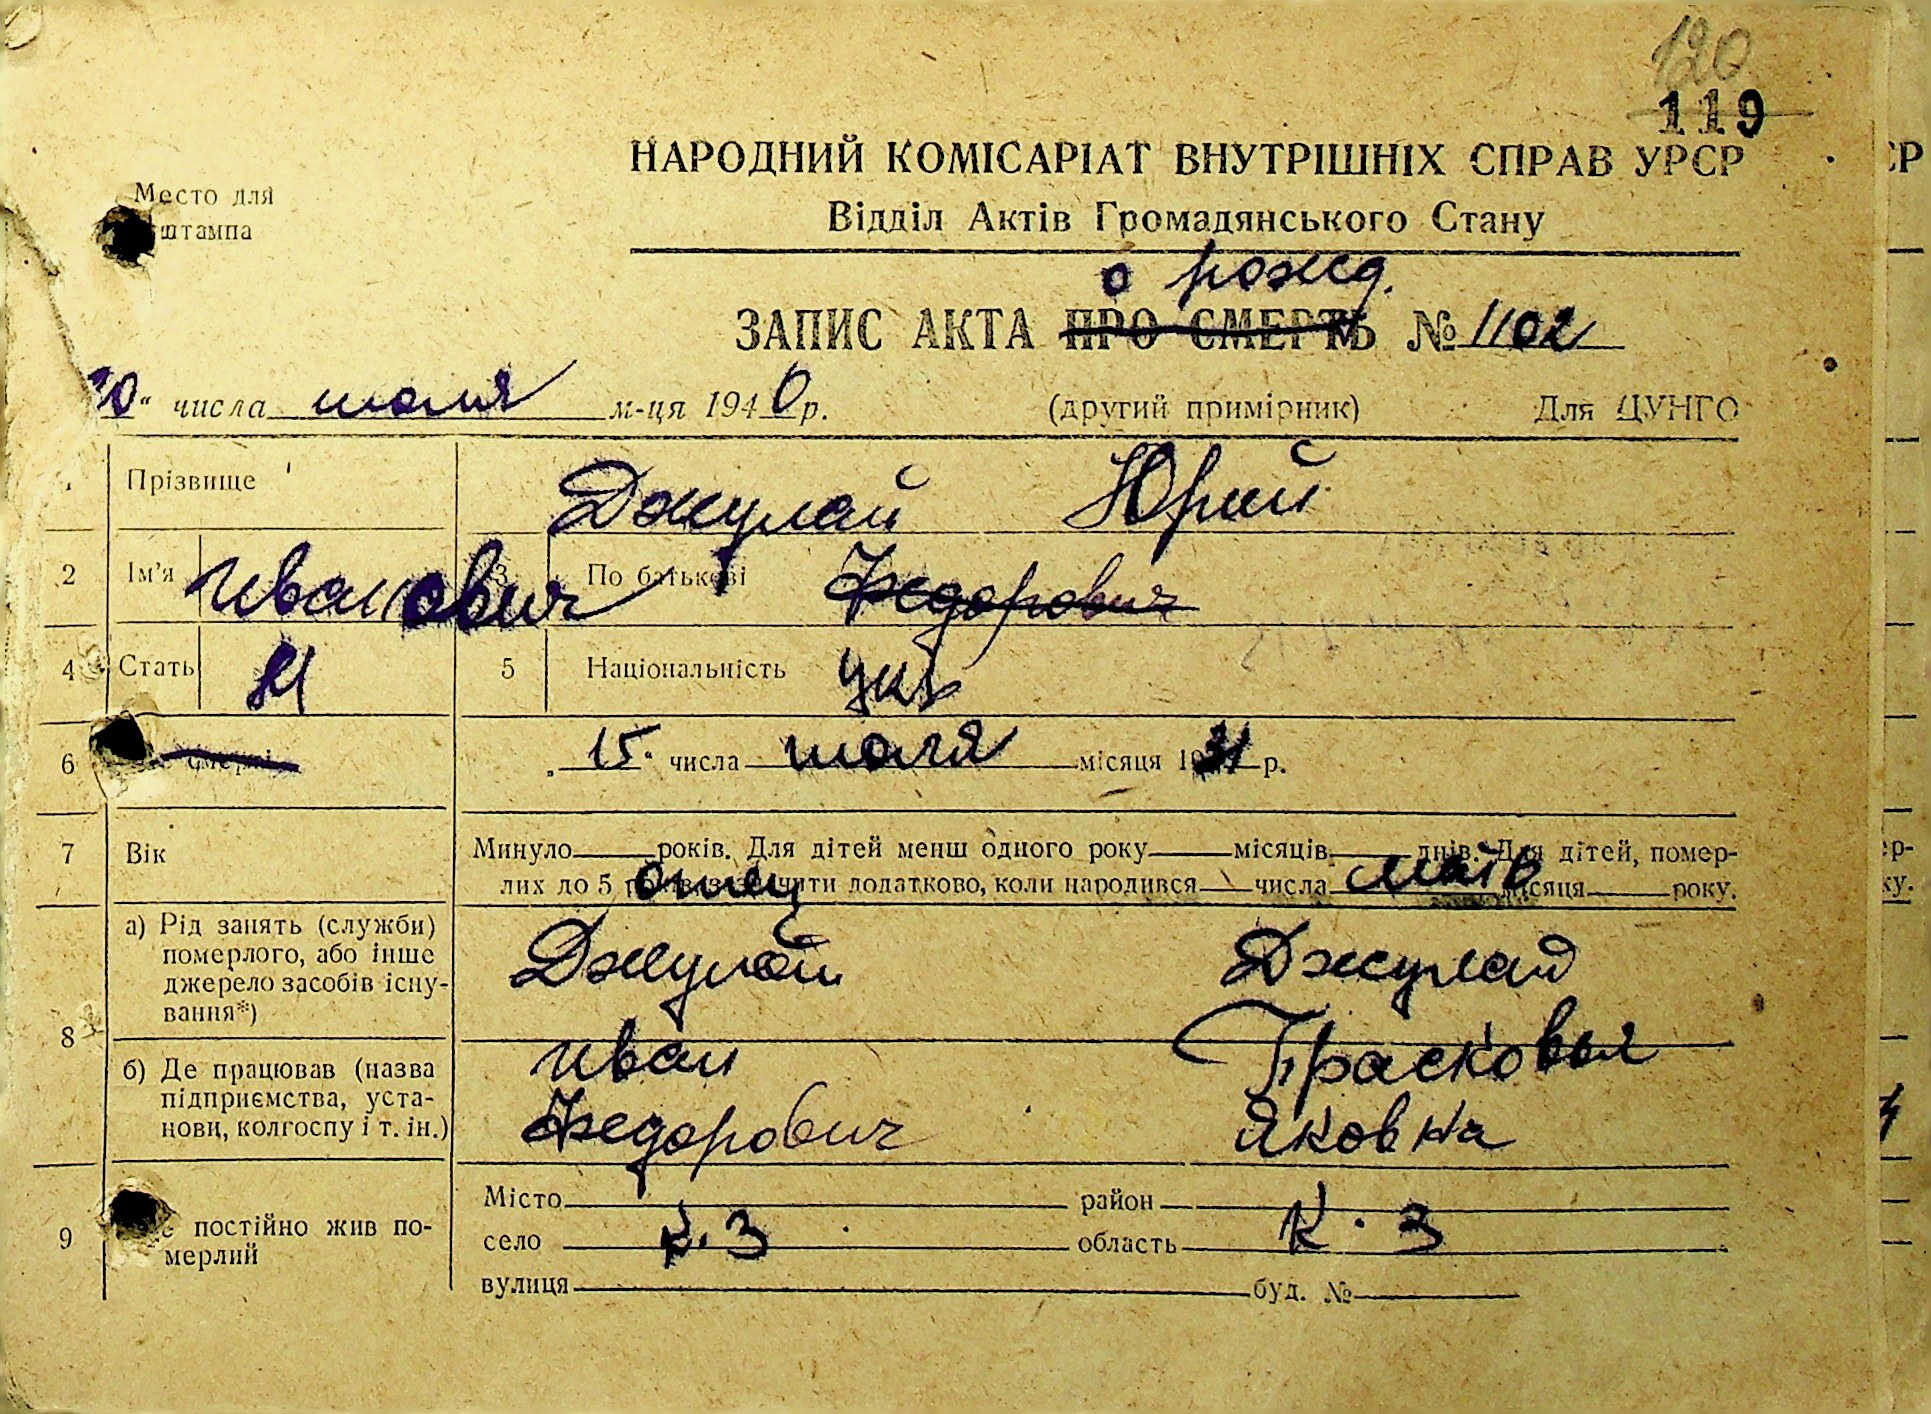 120
119
НАРОДНИЙ КОМІСАРІАТ ВНУТРІШНІХ СПРАВ УРСР
Место для
штампа
Відділ Актів Громадянського Стану
о рожд.
ЗАПИС АКТА ПРО СМЕРТЬ № 1102
"числа июля м-ця 1940 р. (другий примірник) Для ЦУНГО
1 Прізвище Джулай Юрий
2 Ім'я Иванович 3 По батькові Федорович
4 Стать М 5 Національність укр
6 смерті „15" числа июля місяця 1931 р.
7 Вік Минуло ___ років. Для дітей менш одного року ___ місяців ___ днів. Для дітей, помер-
лих до 5 років, зазначити додатково, коли народився ___ числа ___ місяця ___ року.
отец мать
а) Рід занять (служби)
померлого, або інше
джерело засобів існу-
вання*)
Джулай Джулай
8
б) Де працював (назва
підприємства, уста-
нови, колгоспу і т. ін.)
Иван Прасковья
Федорович Яковна
9 постійно жив по-
мерлий
Місто ___ район ___
село К. З область К. З
вулиця ___ буд. № ___